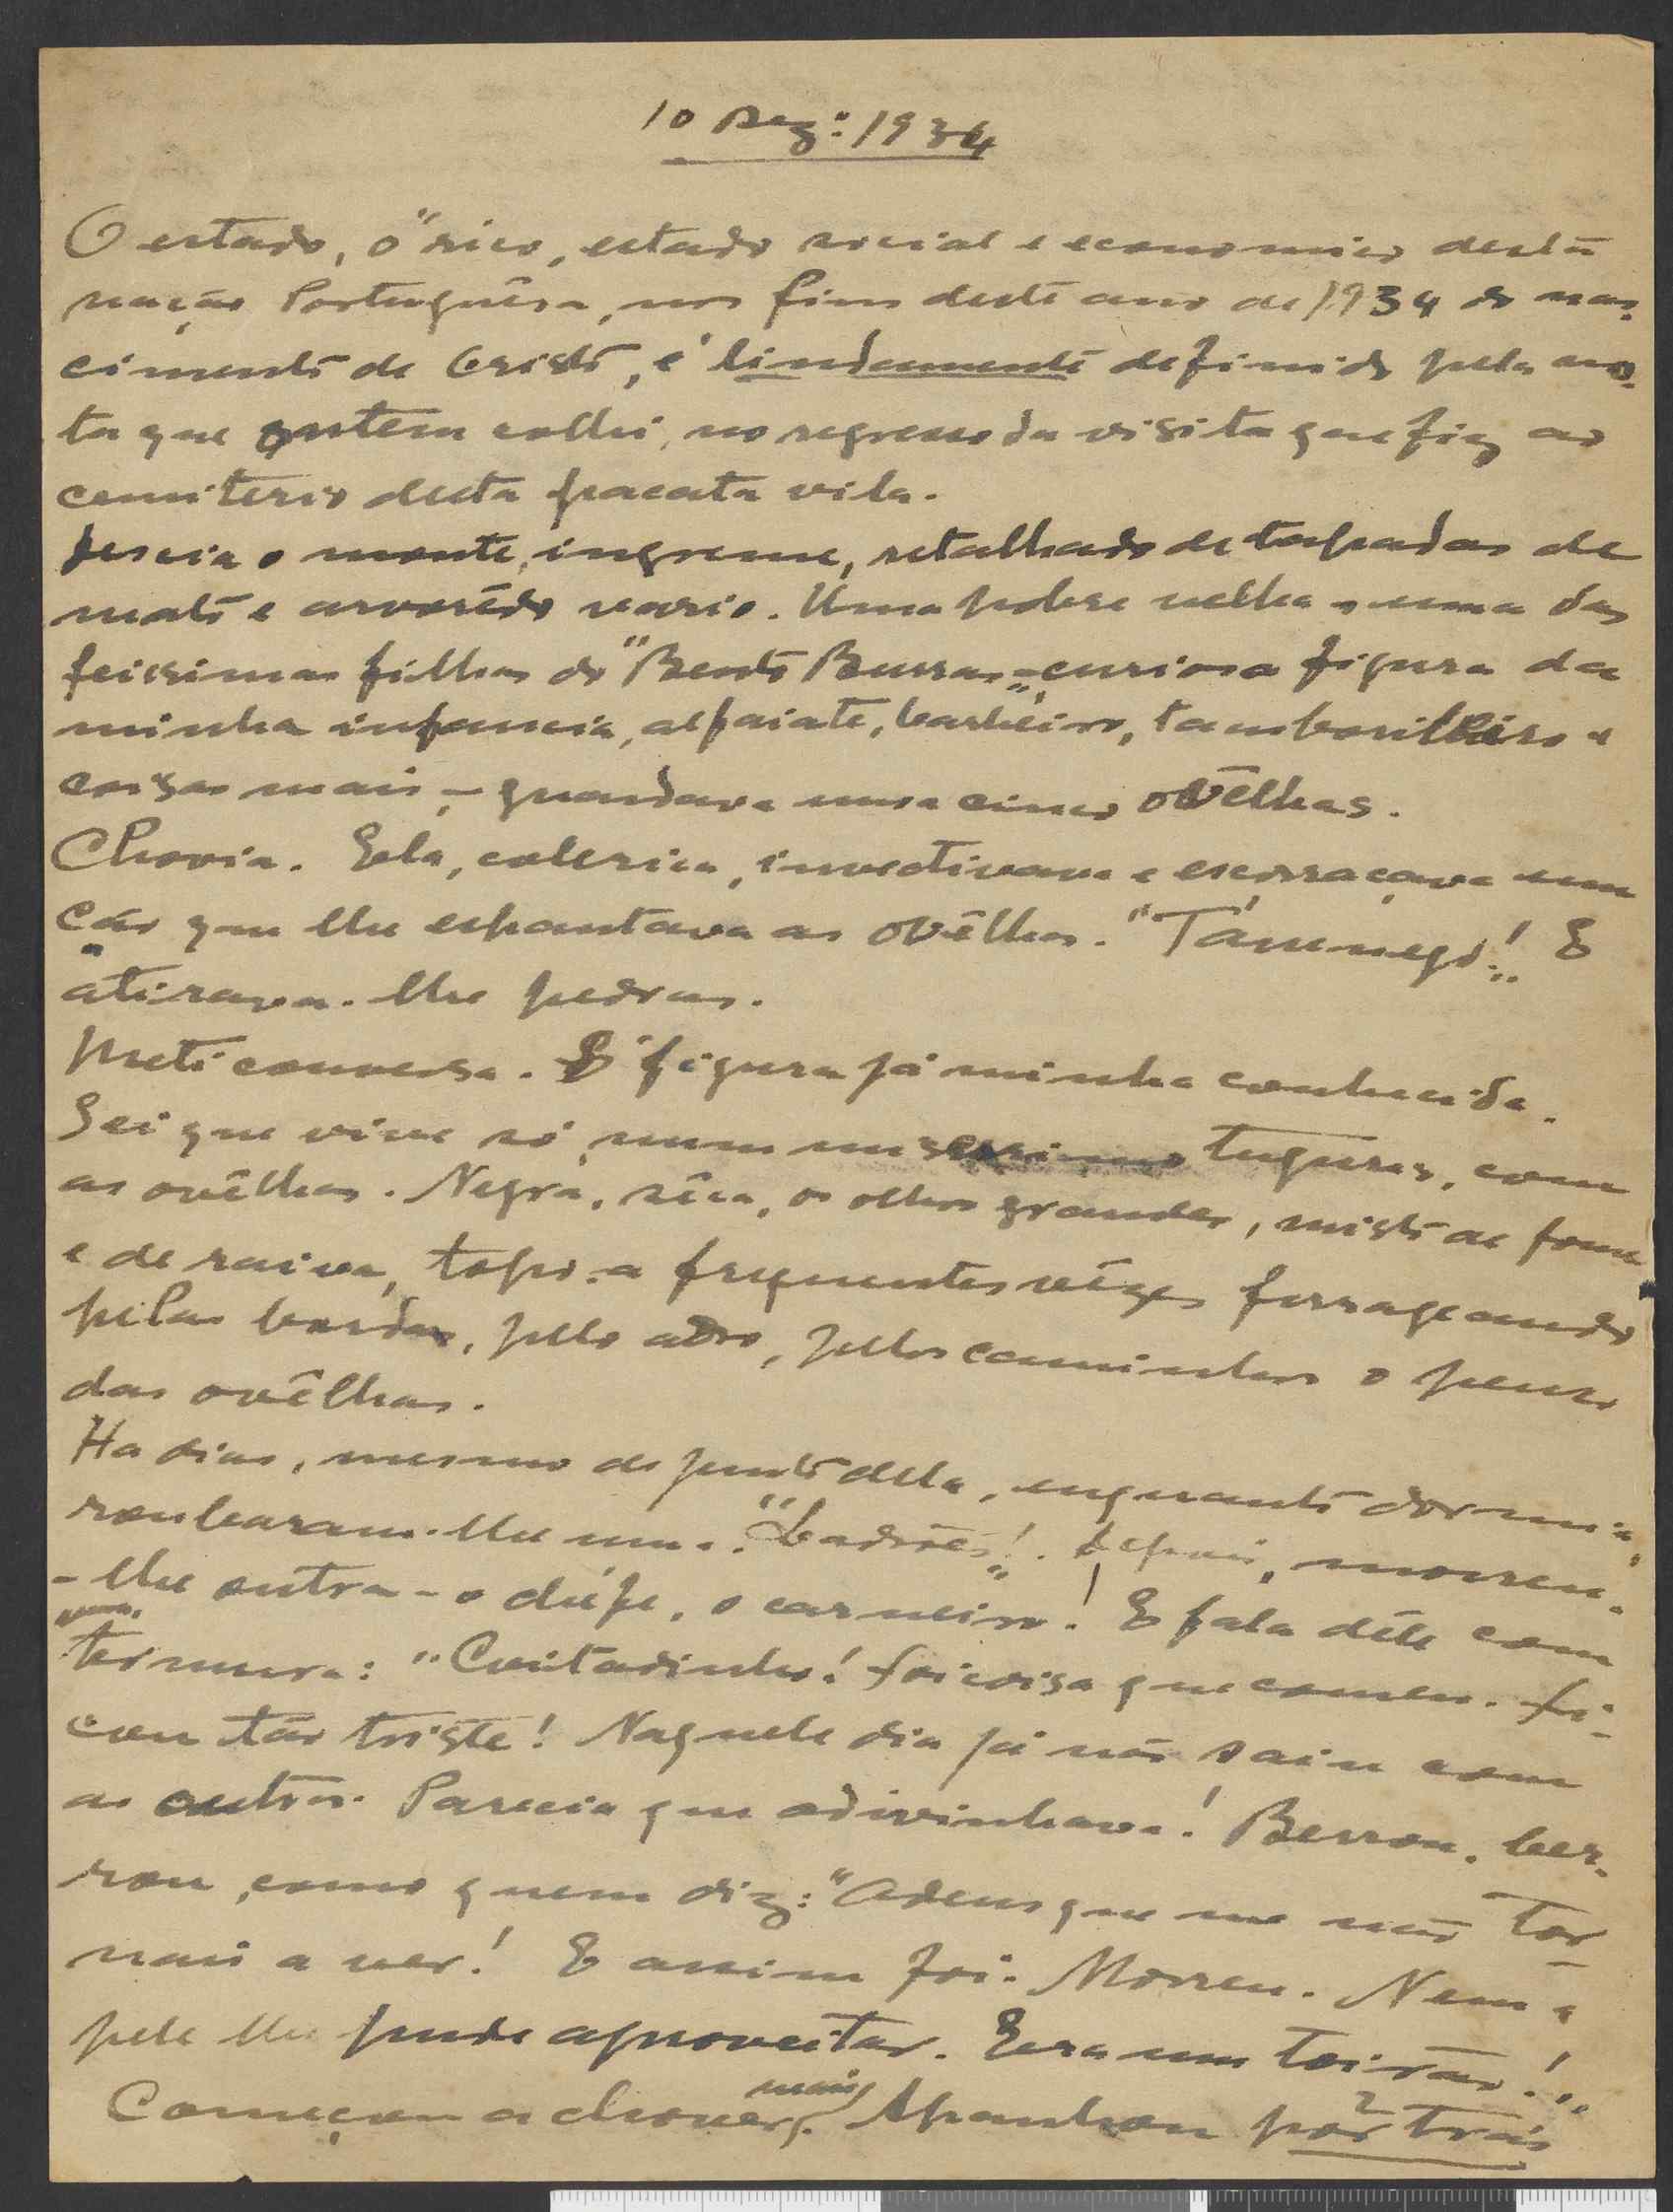 10 Dez: 1934
O estado, o "rico" estado social e economico desta
nação Portuguêsa, nos fins deste ano de 1934 do nas-
cimento de Cristo, é lindamente definido pela ano-
ta que ontem colhi, no regresso da visita que fiz ao
cemiterio desta pacata vila.
Descia o monte, ingreme, retalhado de tapadas de
mato e arvorêdo vario. Uma pobre velha - uma das
feissimas filhas do "Bento Burras" - curiosa figura da
minha infancia, alfaiate, barbeiro, tamborileiro e
coisas mais, - guardava umas cinco ovêlhas.
Chovia. Ela, colerica, invectivava e escorraçava um
cão que lhe espantava as ovêlhas. "Tá, !" E
atirava-lhe pedras.
Meti conversa. É figura já minha conhecida.
Sei que vive só, num miserrimo tugurio, com
as ovêlhas. Negra, sêca, os olhos grandes, misto de fome
e de raiva, topo-a frequentes vêzes forrageando
pelas bordas, pelo adro, pelos caminhos o penso
das ovêlhas.
Ha dias, mesmo de junto dela, enquanto dormia,
roubaram-lhe uma. "Ladrões!" Depois, morreu-
-lhe outra - o chefe, o carneiro! E fala dêle com
ternura: "Coitadinho! foi coisa que comeu. Fi-
cou tão triste! Naquele dia já não saiu com
as outras. Parecia que adivinhava! Berrou, ber-
rou, como quem diz: "Adeus que me não tor-
nais a ver! E assim foi. Morreu. Nem a
pele lhe pude aproveitar. Era um toirão!"
Começou a chover mais. Apanhou por trás